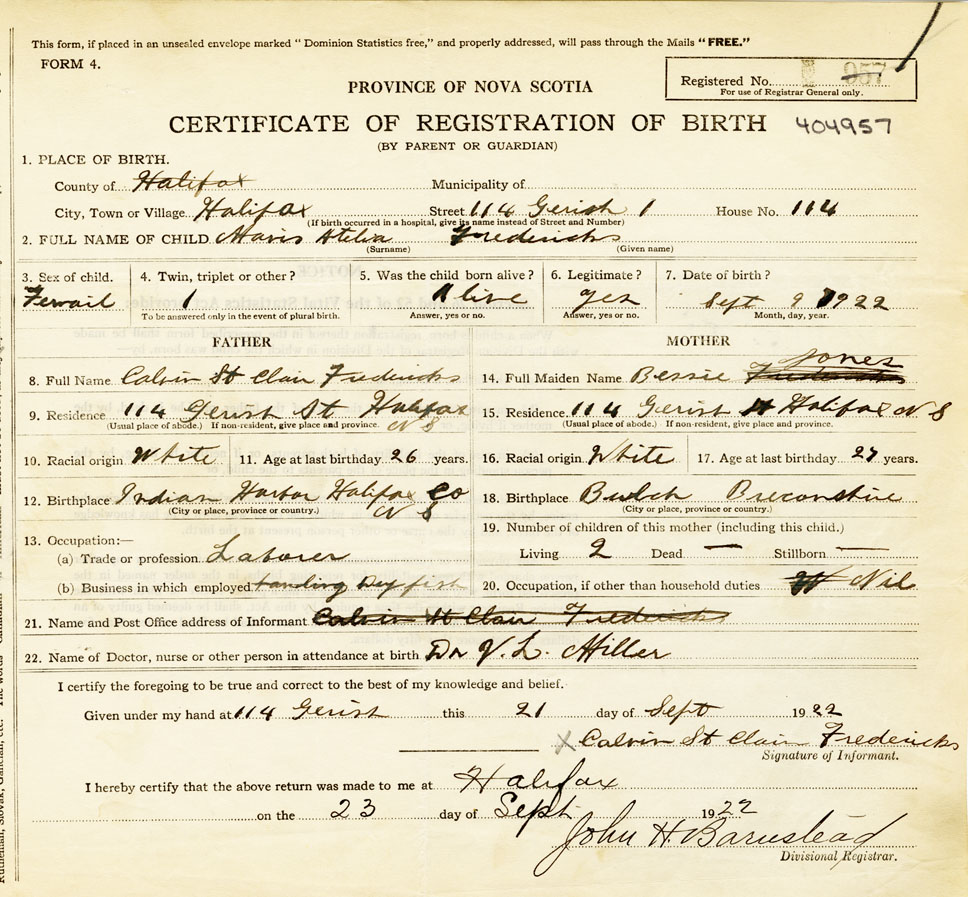 This form, if placed in an unsealed envelope marked “ Dominion Statistics free,” and properly addressed, will pass through the Mails “ FREE.”
FORM 4.
Registered No. 957
For use of Registrar General only.
PROVINCE OF NOVA SCOTIA
CERTIFICATE OF REGISTRATION OF BIRTH 404957
(BY PARENT OR GUARDIAN)
1. PLACE OF BIRTH.
County of Halifax Municipality of
City, Town or Village Halifax Street 114 Gerish House No. 114
(If birth occurred in a hospital, give its name instead of Street and Number)
2. FULL NAME OF CHILD Mavis Atelia Fredericks
(Surname) (Given name)
3. Sex of child. 4. Twin, triplet or other? 5. Was the child born alive? 6. Legitimate? 7. Date of birth?
Femail 1 Alive yes Sept 9 1922
To be answered only in the event of plural birth. Answer, yes or no. Answer, yes or no. Month, day, year.
FATHER MOTHER
Jones
8. Full Name Calvin St Clair Fredericks 14. Full Maiden Name Bessie Fredericks
9. Residence 114 Gerish St Halifax N S 15. Residence 114 Gerish St Halifax N S
(Usual place of abode.) If non-resident, give place and province. (Usual place of abode.) If non-resident, give place and province.
10. Racial origin White 11. Age at last birthday 26 years. 16. Racial origin White 17. Age at last birthday 27 years.
12. Birthplace Indian Harbor Halifax Co N S 18. Birthplace Bulch Breconshire
(City or place, province or country.) (City or place, province or country.)
19. Number of children of this mother (including this child.)
13. Occupation:—
(a) Trade or profession Laborer Living 2 Dead — Stillborn —
(b) Business in which employed handling Dry fish 20. Occupation, if other than household duties Nil
21. Name and Post Office address of Informant Calvin St Clair Fredericks
22. Name of Doctor, nurse or other person in attendance at birth Dr V. L. Miller
I certify the foregoing to be true and correct to the best of my knowledge and belief.
Given under my hand at 114 Gerish this 21 day of Sept 1922
X Calvin St Clair Fredericks
Signature of Informant.
I hereby certify that the above return was made to me at Halifax
on the 23 day of Sept 1922
John H. Barnstead
Divisional Registrar.